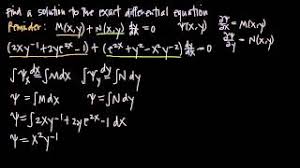 Find a solution to the exact differential equation
Reminder: M(x,y) + N(x,y) dy/dx = 0 Ψ(x,y) ∂Ψ/∂x = M(x,y)
∂Ψ/∂y = N(x,y)
(2xy⁻¹ + 2ye²ˣ - 1) + (e²ˣ + y² - x²y⁻²) dy/dx = 0
∫Ψₓ dx = ∫M dx ∫Ψy dy = ∫N dy
Ψ = ∫M dx Ψ = ∫N dy
Ψ = ∫2xy⁻¹ + 2ye²ˣ - 1 dx
Ψ = x²y⁻¹